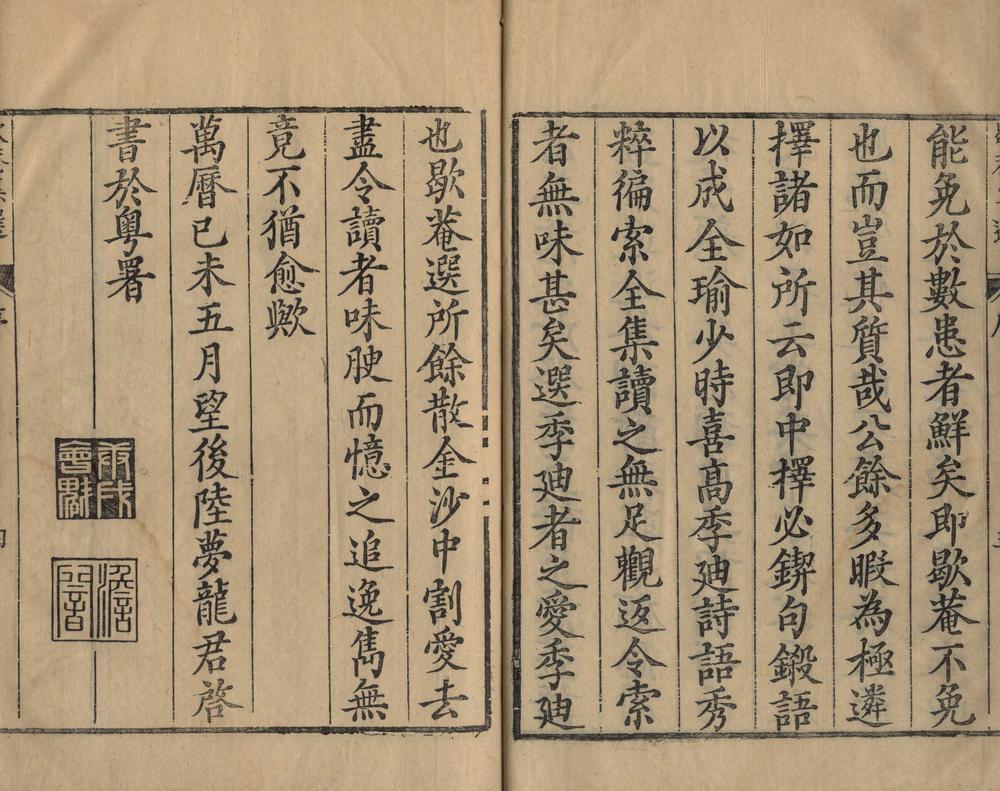 能免於數患者鮮矣即歇菴不免
也而豈其質哉公餘多暇為極遴
擇諸如所云即中擇必鍥句鍛語
以成全瑜少時喜高季廸詩語秀
粹徧索全集讀之無足觀返令索
者無味甚矣選季廸者之愛季廸
也歇菴選所餘散金沙中割愛去
盡令讀者味腴而憶之追逸雋無
竟不猶愈歟
萬曆已未五月望後陸夢龍君啓
書於粤署